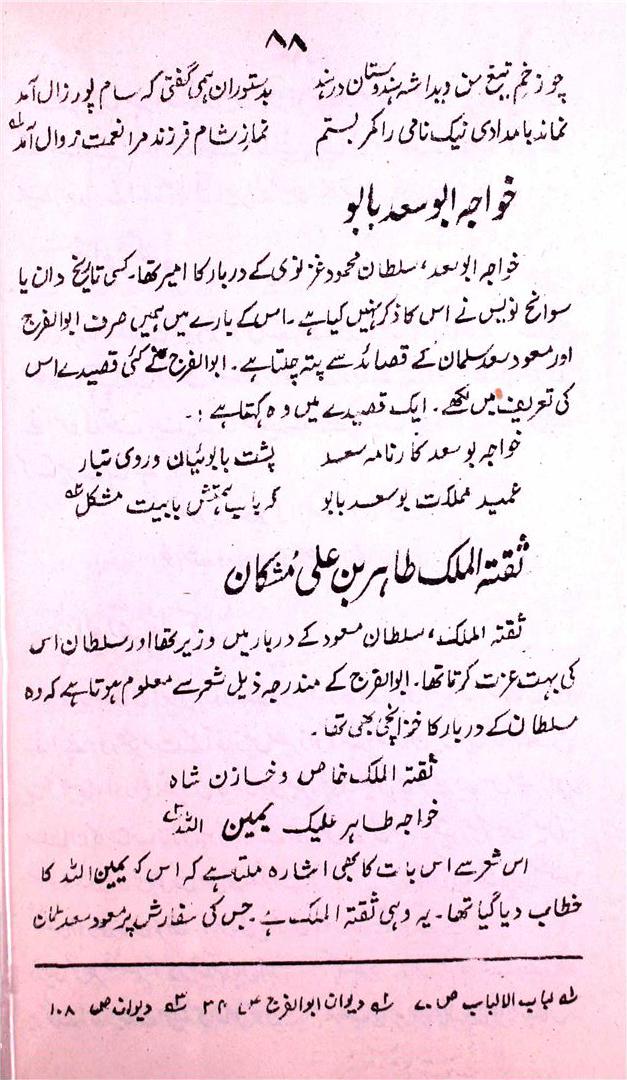 ۸۸
چو زخمِ تیغ من دید اشہِ ہندوستان در ہند بدستوران ہمی گفتی کہ سام پور زال آمد
نماند بامدادی نیک نامی را کمر بستم نمازِ شام فرزند مرا نعمت زوال آمد لہ
خواجہ ابو سعد بابو
خواجہ ابو سعد، سلطان محمود غزنوی کے دربار کا امیر تھا۔ کسی تاریخ دان یا
سوانح نویس نے اس کا ذکر نہیں کیا ہے۔ اس کے بارے میں ہمیں صرف ابو الفرج
اور مسعود سعد سلمان کے قصائد سے پتہ چلتا ہے۔ ابو الفرج نے کئی قصیدے اس
کی تعریف میں لکھے۔ ایک قصیدے میں وہ کہتا ہے :۔
خواجہ بو سعد کارنامہ سعد پشت بابوئیان و روی تبار
عمید مملکت بو سعد بابو کہ با مشکل ۲ہ
ثقتہ الملک طاہر بن علی مُشکان
ثقتہ الملک، سلطان مسعود کے دربار میں وزیر تھا اور سلطان اس
کی بہت عزت کرتا تھا۔ ابو الفرج کے مندرجہ ذیل شعر سے معلوم ہوتا ہے کہ وہ
سلطان کے دربار کا خزانچی بھی تھا۔
ثقتہ الملک خاص و خازن شاہ
خواجہ طاہر علیک یمین اللہ ۳ہ
اس شعر سے اس بات کا بھی اشارہ ملتا ہے کہ اس کو یمین اللہ کا
خطاب دیا گیا تھا۔ یہ وہی ثقتہ الملک ہے جس کی سفارش پر مسعود سعد سلمان
۱ہ لباب الالباب ص ۷۰ ۲ہ دیوان ابو الفرج ص ۳۴ ۳ہ دیوان ص ۱۰۸